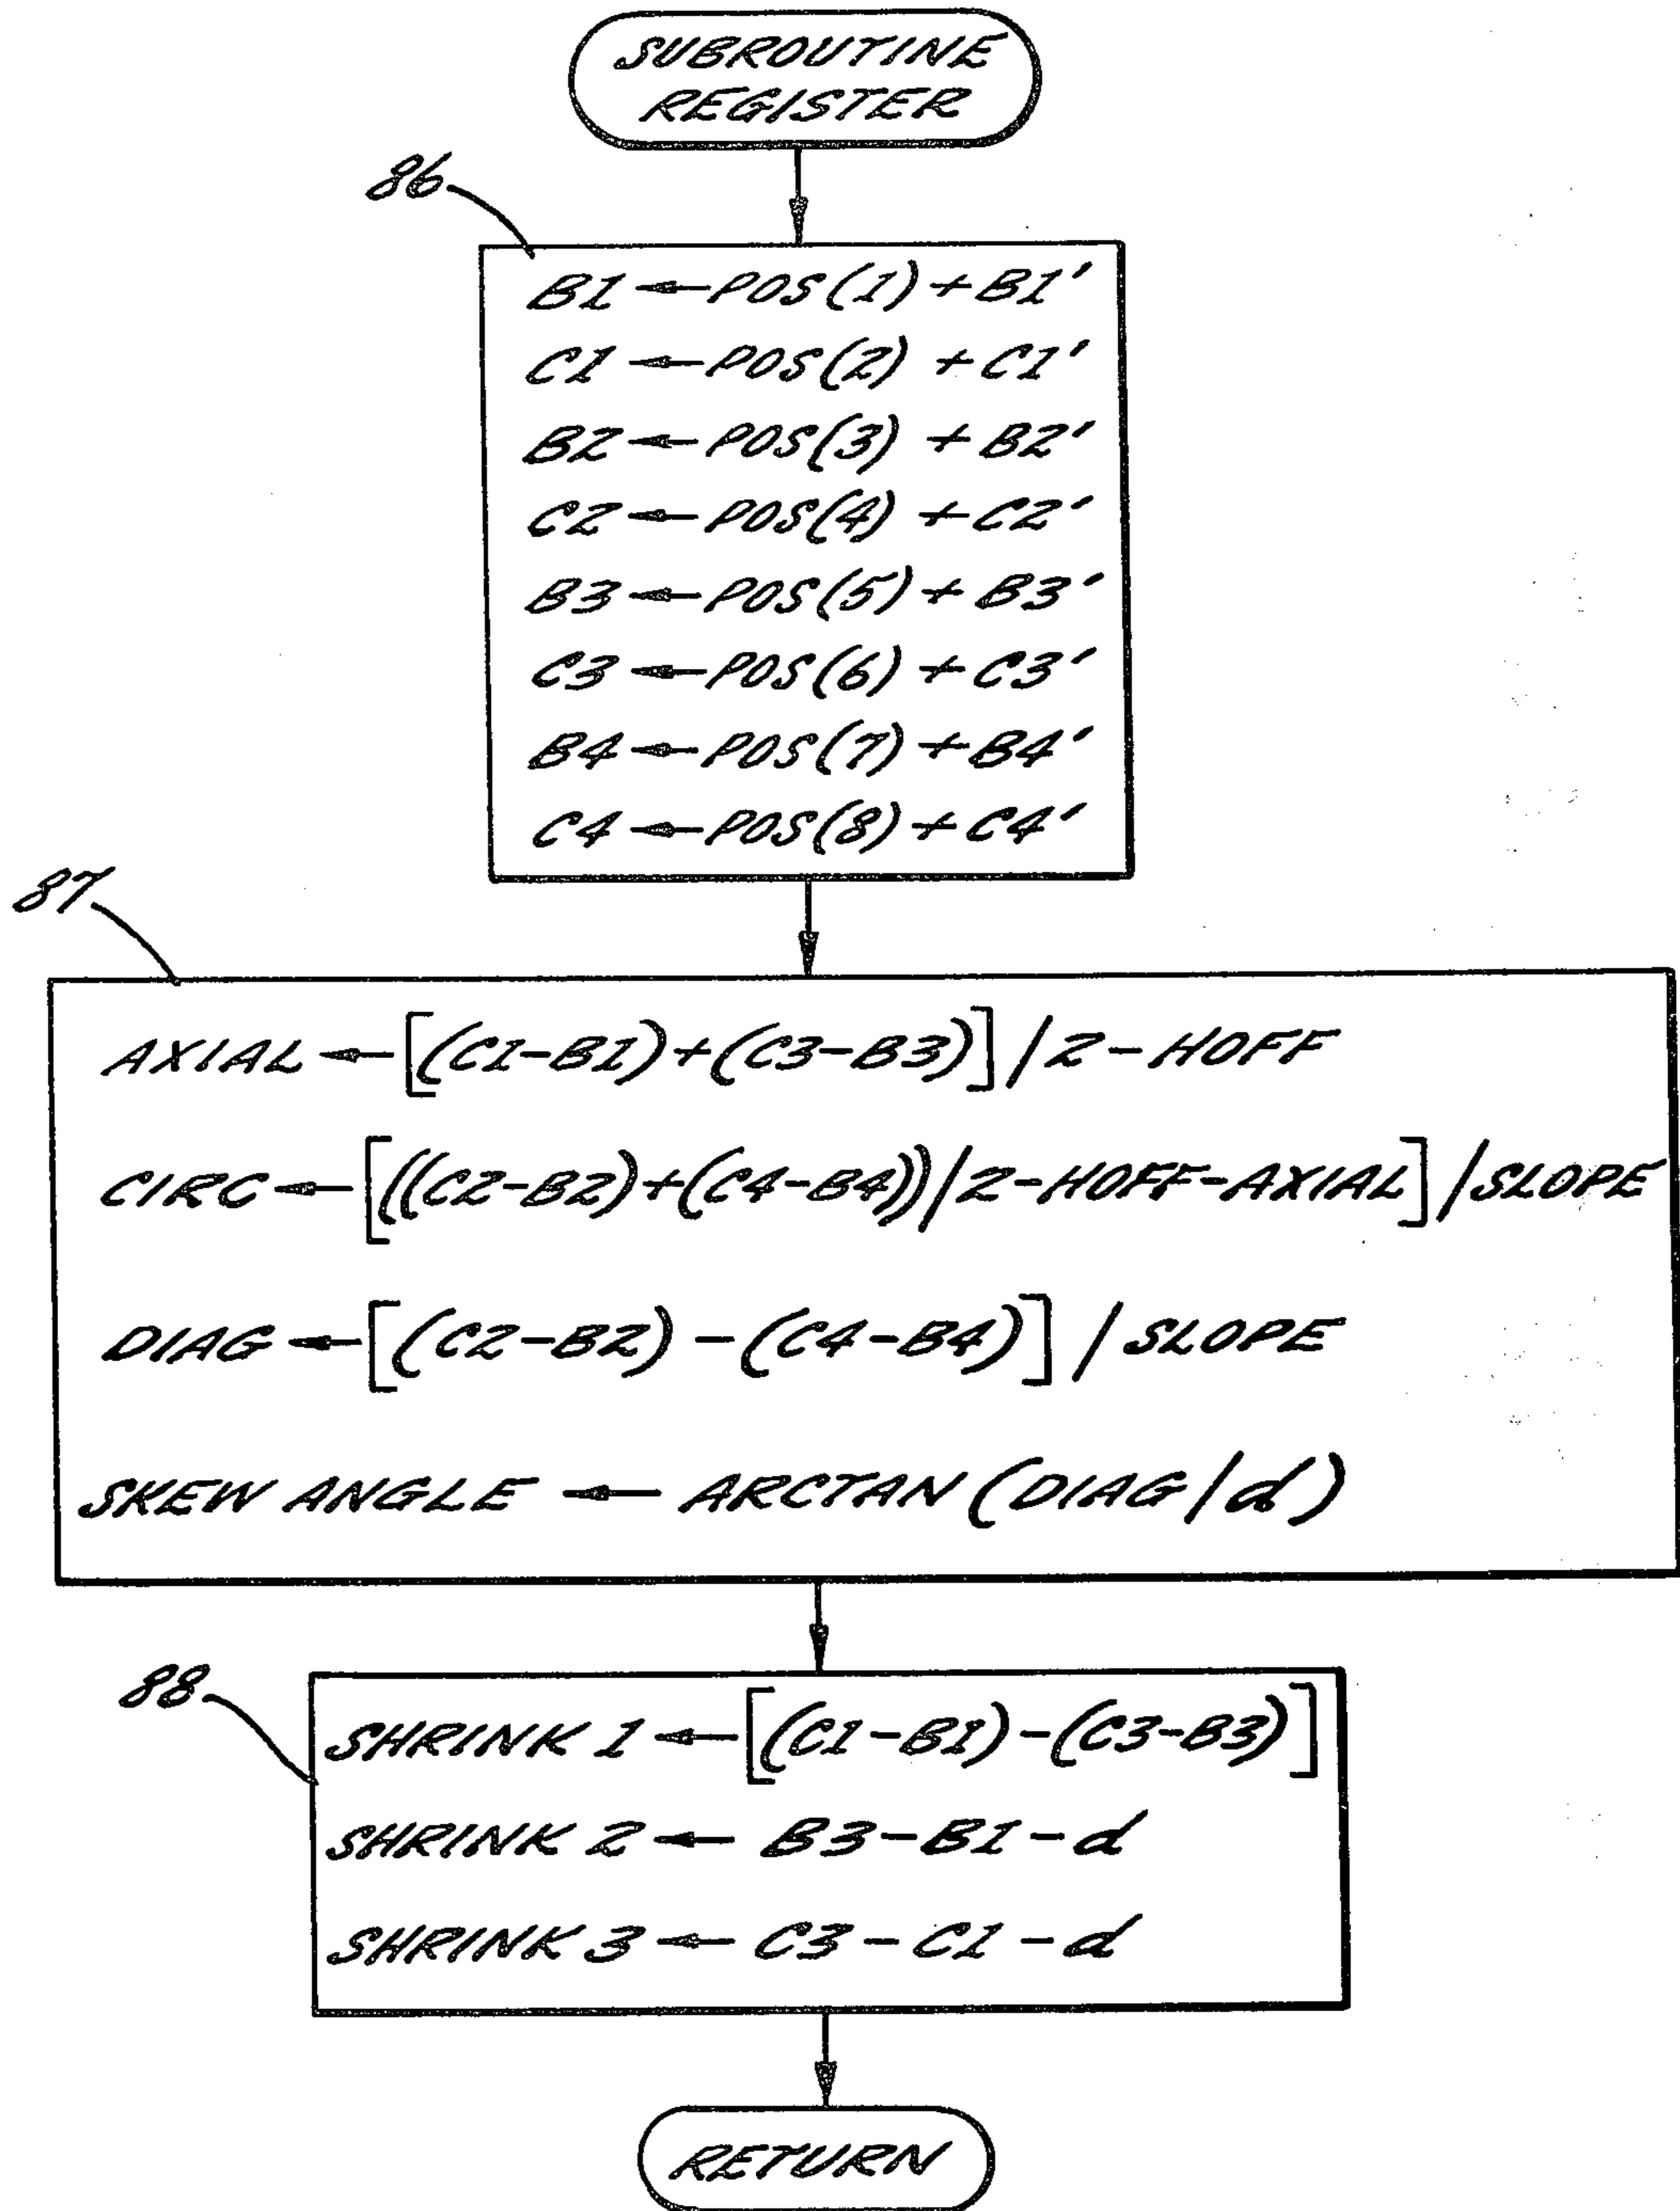 SUBROUTINE
REGISTER
86
B1 ← POS(1) + B1'
C1 ← POS(2) + C1'
B2 ← POS(3) + B2'
C2 ← POS(4) + C2'
B3 ← POS(5) + B3'
C3 ← POS(6) + C3'
B4 ← POS(7) + B4'
C4 ← POS(8) + C4'
87
AXIAL ← [(C1-B1)+(C3-B3)]/2-HOFF
CIRC ← [((C2-B2)+(C4-B4))/2-HOFF-AXIAL]/SLOPE
DIAG ← [(C2-B2) - (C4-B4)] / SLOPE
SKEW ANGLE ← ARCTAN (DIAG/d)
88
SHRINK 1 ← [(C1-B1)-(C3-B3)]
SHRINK 2 ← B3-B1-d
SHRINK 3 ← C3-C1-d
RETURN